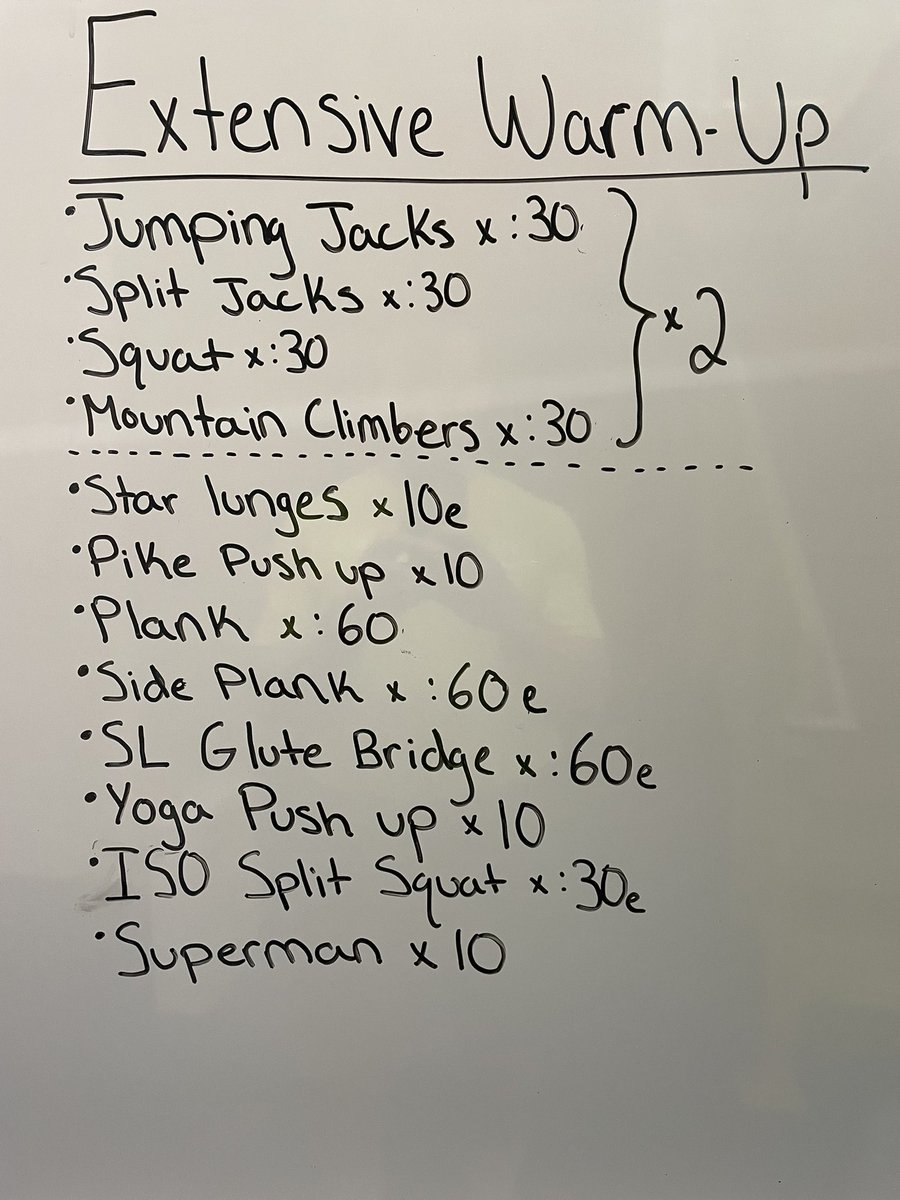 Extensive Warm-Up
• Jumping Jacks x :30
• Split Jacks x :30
• Squat x :30
• Mountain Climbers x :30
} x 2
• Star lunges x 10e
• Pike Push up x 10
• Plank x :60
• Side Plank x :60 e
• SL Glute Bridge x :60e
• Yoga Push up x 10
• ISO Split Squat x :30e
• Superman x 10